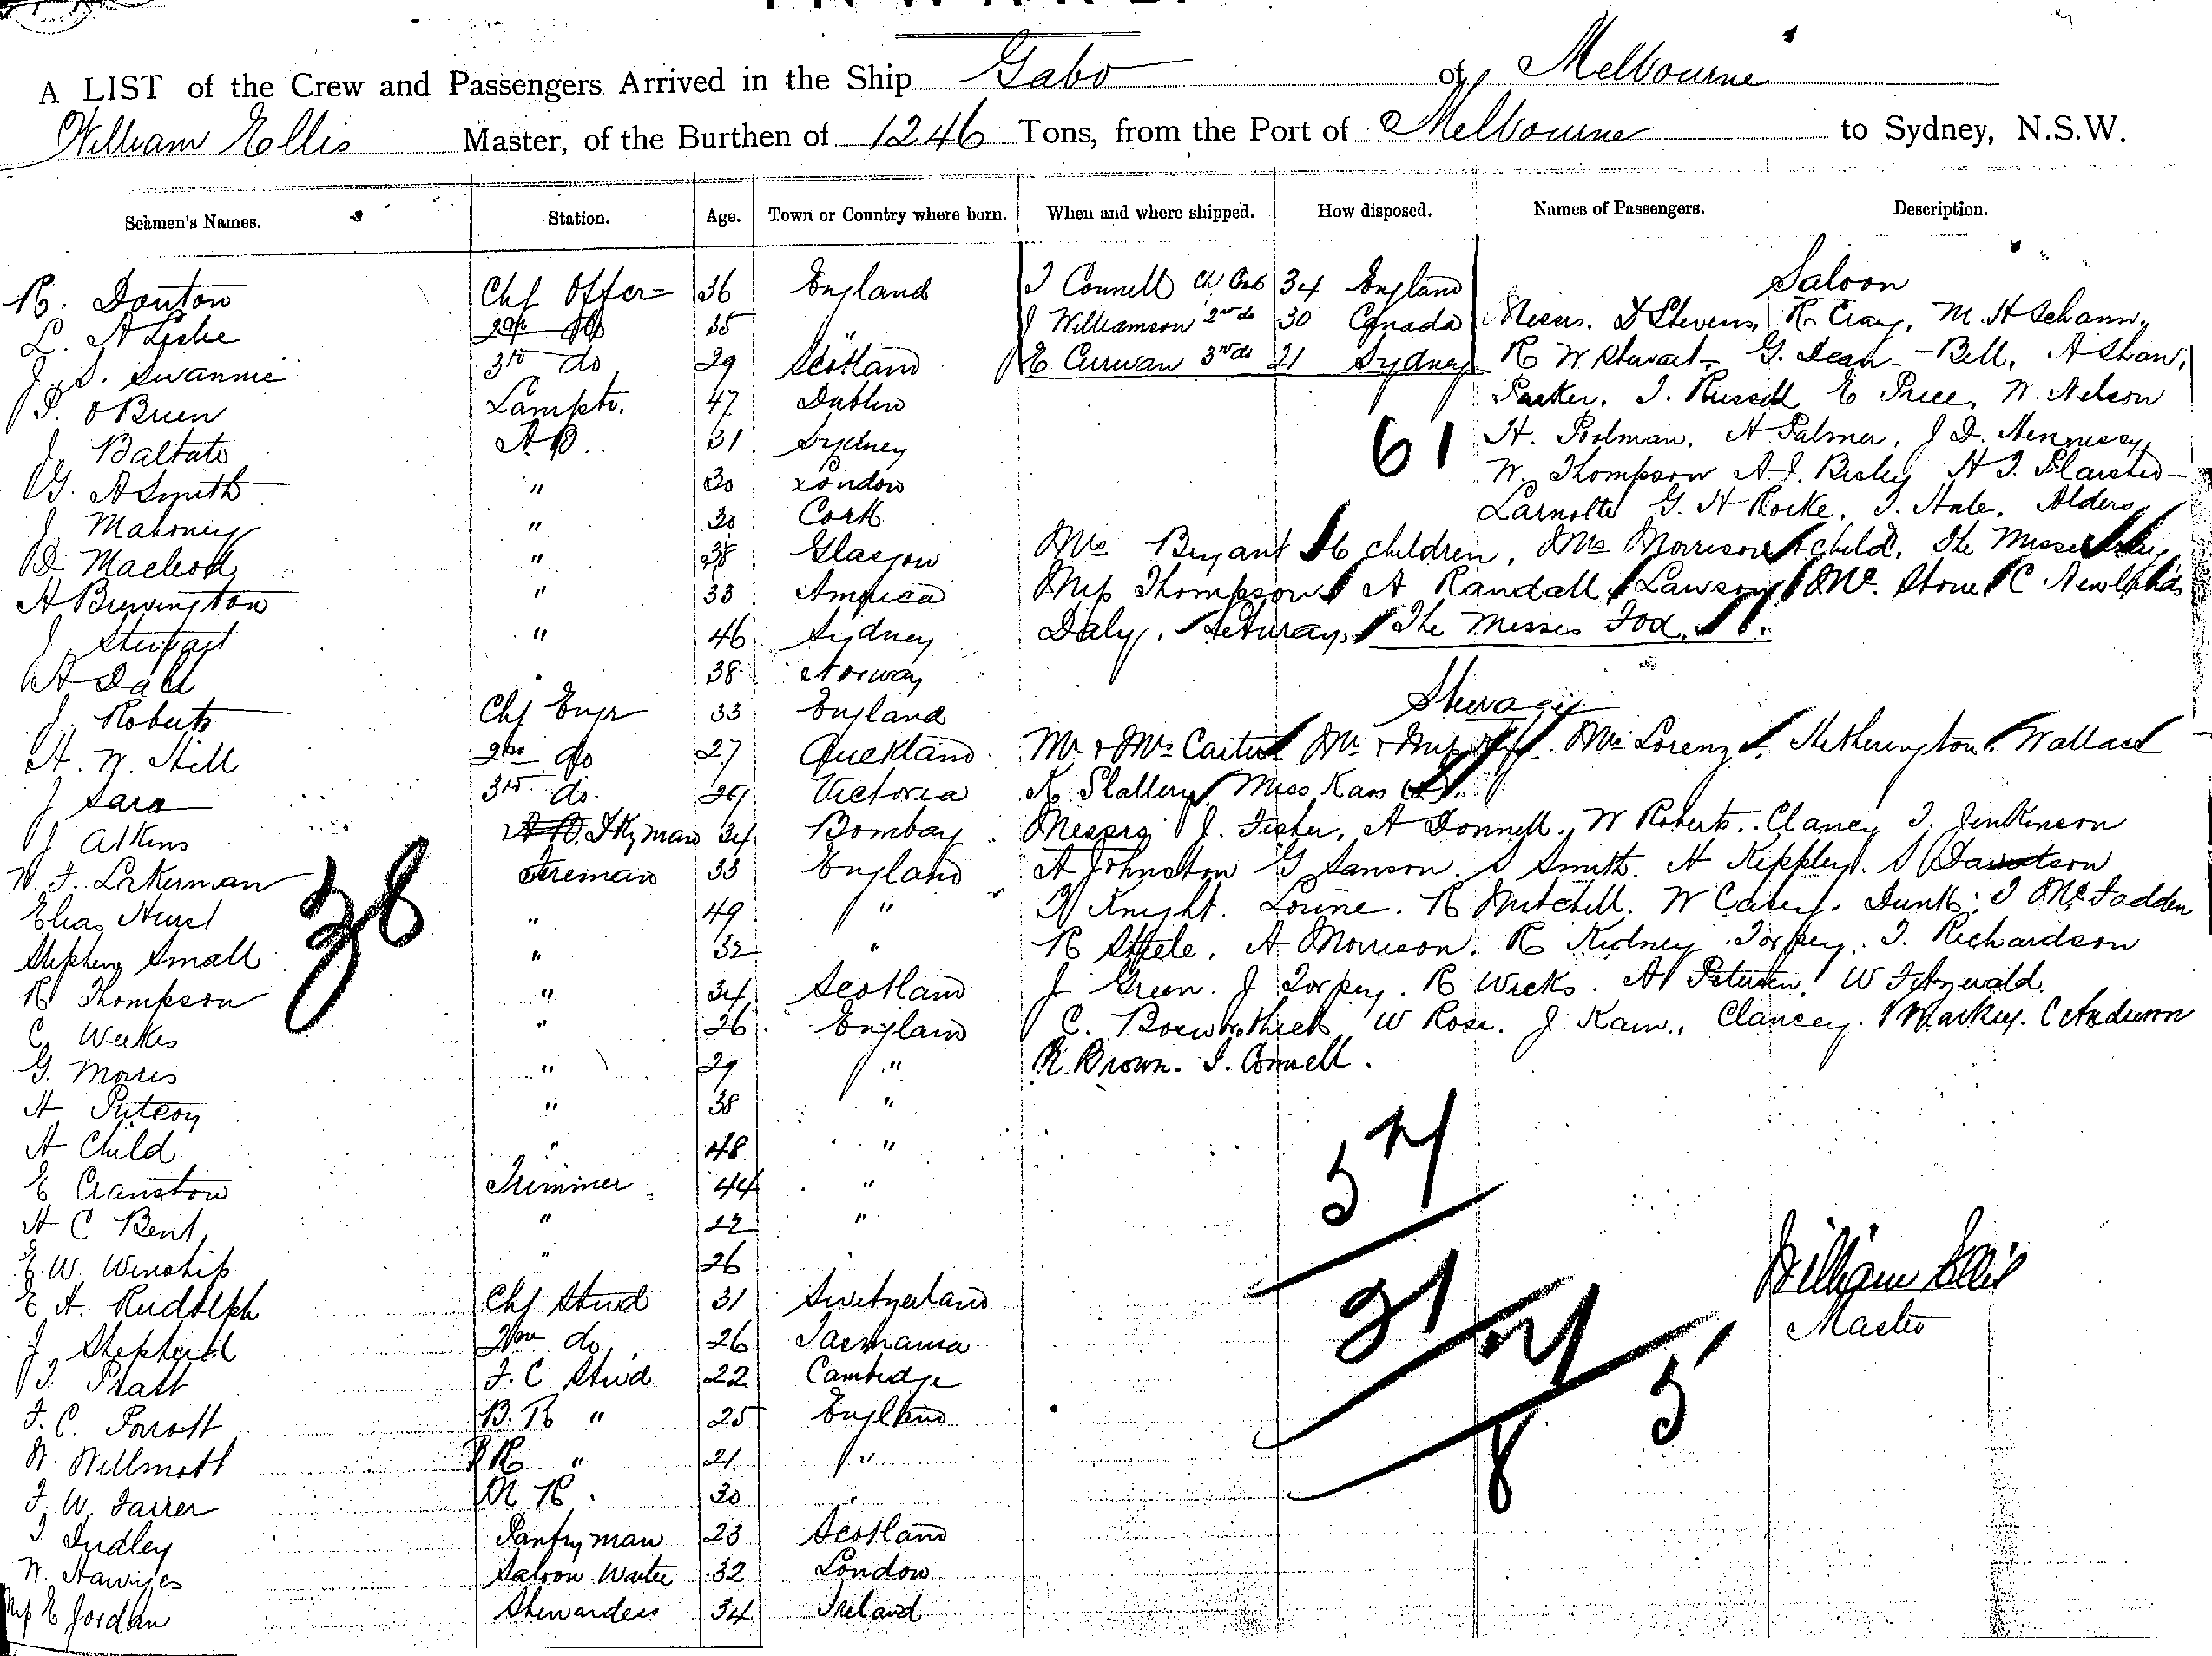 INWARD.
A LIST of the Crew and Passengers Arrived in the Ship Gabo of Melbourne
William Ellis Master, of the Burthen of 1246 Tons, from the Port of Melbourne to Sydney, N.S.W.
Seamen's Names. Station. Age. Town or Country where born. When and where shipped. How disposed. Names of Passengers. Description.
R. Danton Chf Offer 36 England
L. A Leslie 2nd do 35 "
J. S. Swannie 3rd do 29 Scotland
P. O Brien Lampts. 47 Dublin
J. Baltato A.B. 31 Sydney
G. A Smith " 30 London
J. Mahoney " 30 Cork
D. Macleod " 38 Glasgow
A Brewington " 33 America
J Stewart " 46 Sydney
A Dahl 38 Norway
J. Roberts Chf Engr 33 England
H. W. Hill 2nd do 27 Auckland
J Sara 3rd do. 29 Victoria
J Atkins 34 Bombay
W. F. Lakerman Fireman 33 England
Elias Hurst " 49 "
Stephen Small " 32 "
R Thompson " 34 Scotland
C Weekes " 26 England
G. Morris " 29 "
H " 38 "
A Child " 48 "
E Cranston Trimmer 44 "
H C Bent " 22 "
E. W. Winship " 26
E A. Rudolph Chf Stwd 31 Switzerland
J Shepherd 2nd do 26 Tasmania
J. Pratt F. C Stwd 22 Cambridge
F. C. Porrott B. R " 25 England
W. Willmott B R " 21 "
F. W. Farrer M R. 30
J Dudley Pantryman 23 Scotland
W. Hawyes Saloon Waiter 32 London
Mrs E Jordan Stewardess 34 Ireland
38
J Connell Ch Cook 34 England
J Williamson 2nd do 30 Canada
E Curwan 3rd do 21 Sydney
61
Saloon
Messrs. D Stevens, R Cray, M. H Schann,
R W Stewart - G. Dean - Bell, A Shaw,
Parker, J. Russell E Price, W. Nelson
H. Poolman, H Palmer, J D. Hennessy,
W. Thompson A. J. Bisley H J. Plaisted -
Larnotte G. H Rocke, J. Hale, Alders
Mrs Bryant 6 children, Mrs Morrison & child. The Misses
Miss Thompson A Randall, Lawson Mr. Stone C Newlands
Daly, The Misses Fox.
Steerage
Mr & Mrs Carter Mr & Mrs Mrs Lorenz. Hetherington. Wallace
K. Slattery Miss Kam (2).
Messrs J. Fisher, A Donnell, W Roberts. Clancy J. Jenkinson
A Johnston G Sanson. S Smith. H Kippley. Davidson
Knight. Lorine. R Mitchell. W Casey. Dunk. J McFadden
R Steele, A Morrison, R Kidney Torpey. J. Richardson
J Green. J Torpey. R Weeks. A Petersen, W Fitzgerald.
C. W Rose. J. Kam., Clancey. Markey. C Anderson
R. Brown. J. Connell.
54
31
24
5
8
William Ellis
Master